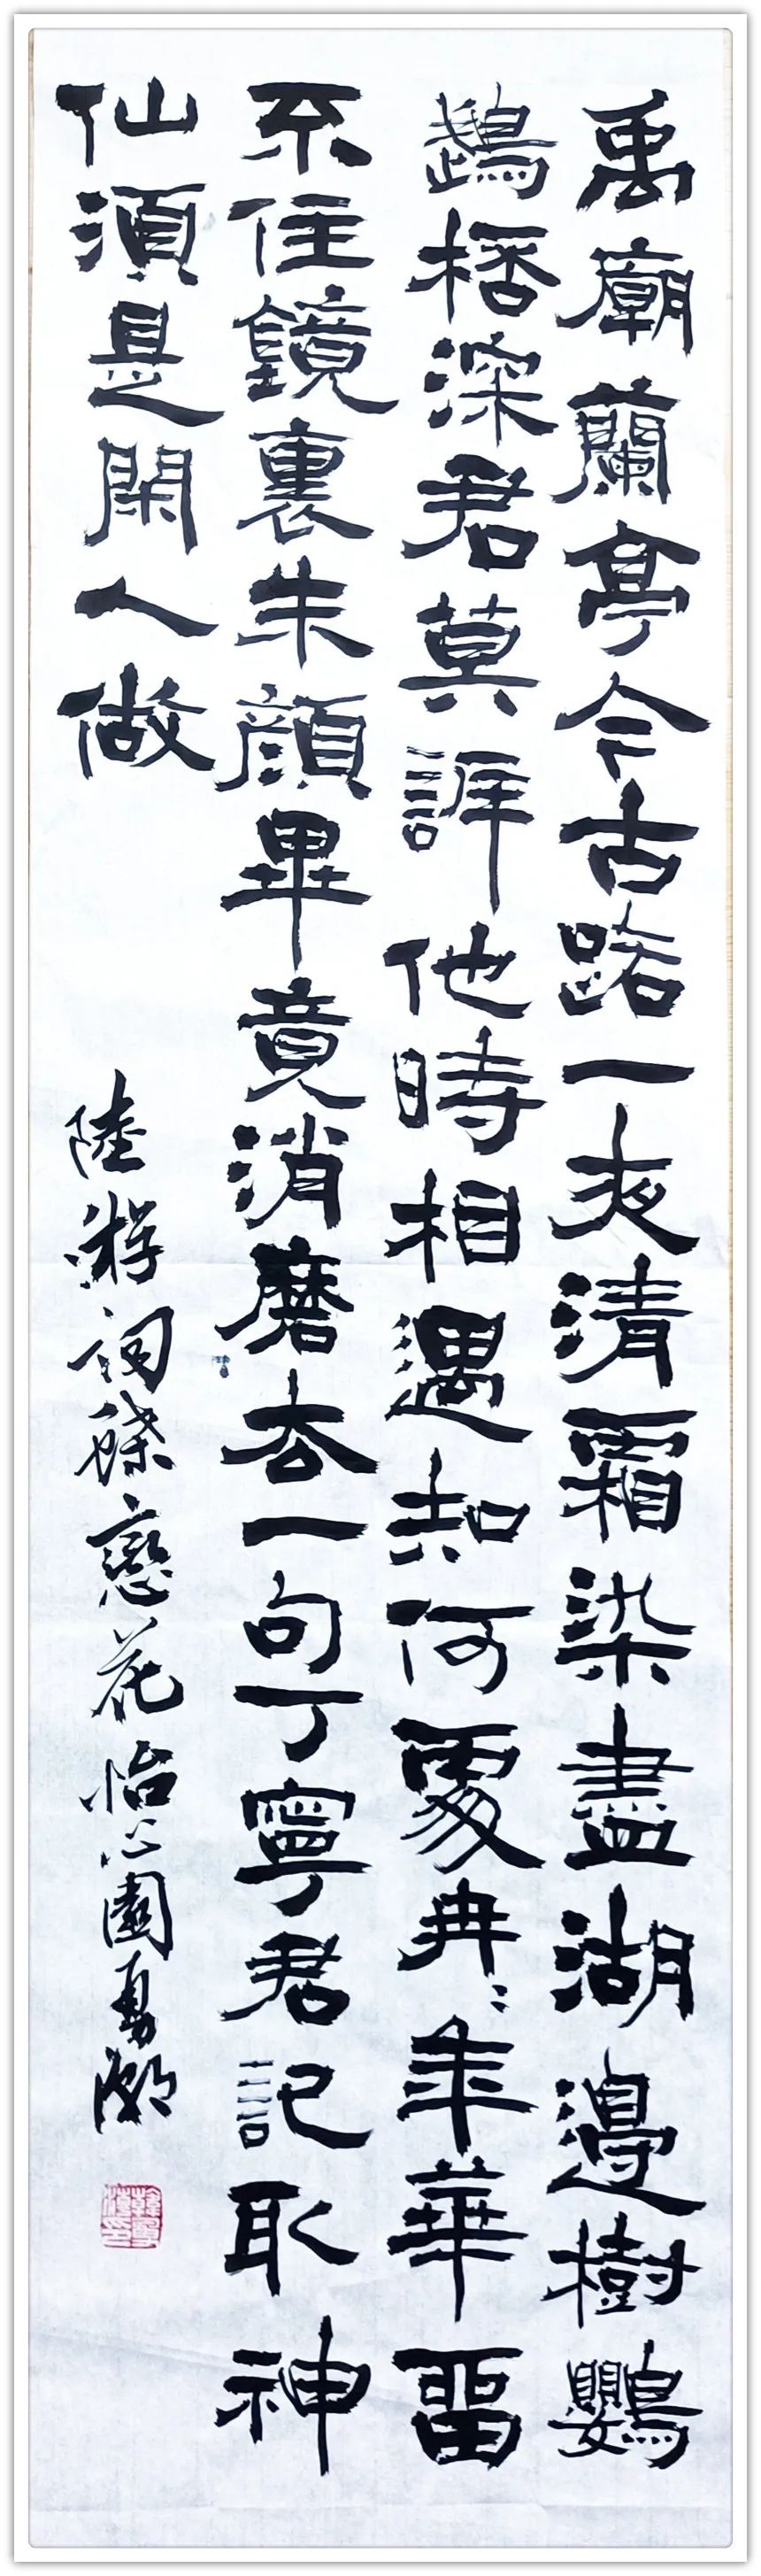 禹廟蘭亭今古路一夜清霜染盡湖邊樹鸚
鵡桮深君莫訴他時相遇知何處冉〻年華留
不住鏡裏朱顏畢竟消磨去一句丁寧君記取神
仙須是閑人做
陸游詞蝶戀花怡心園勇